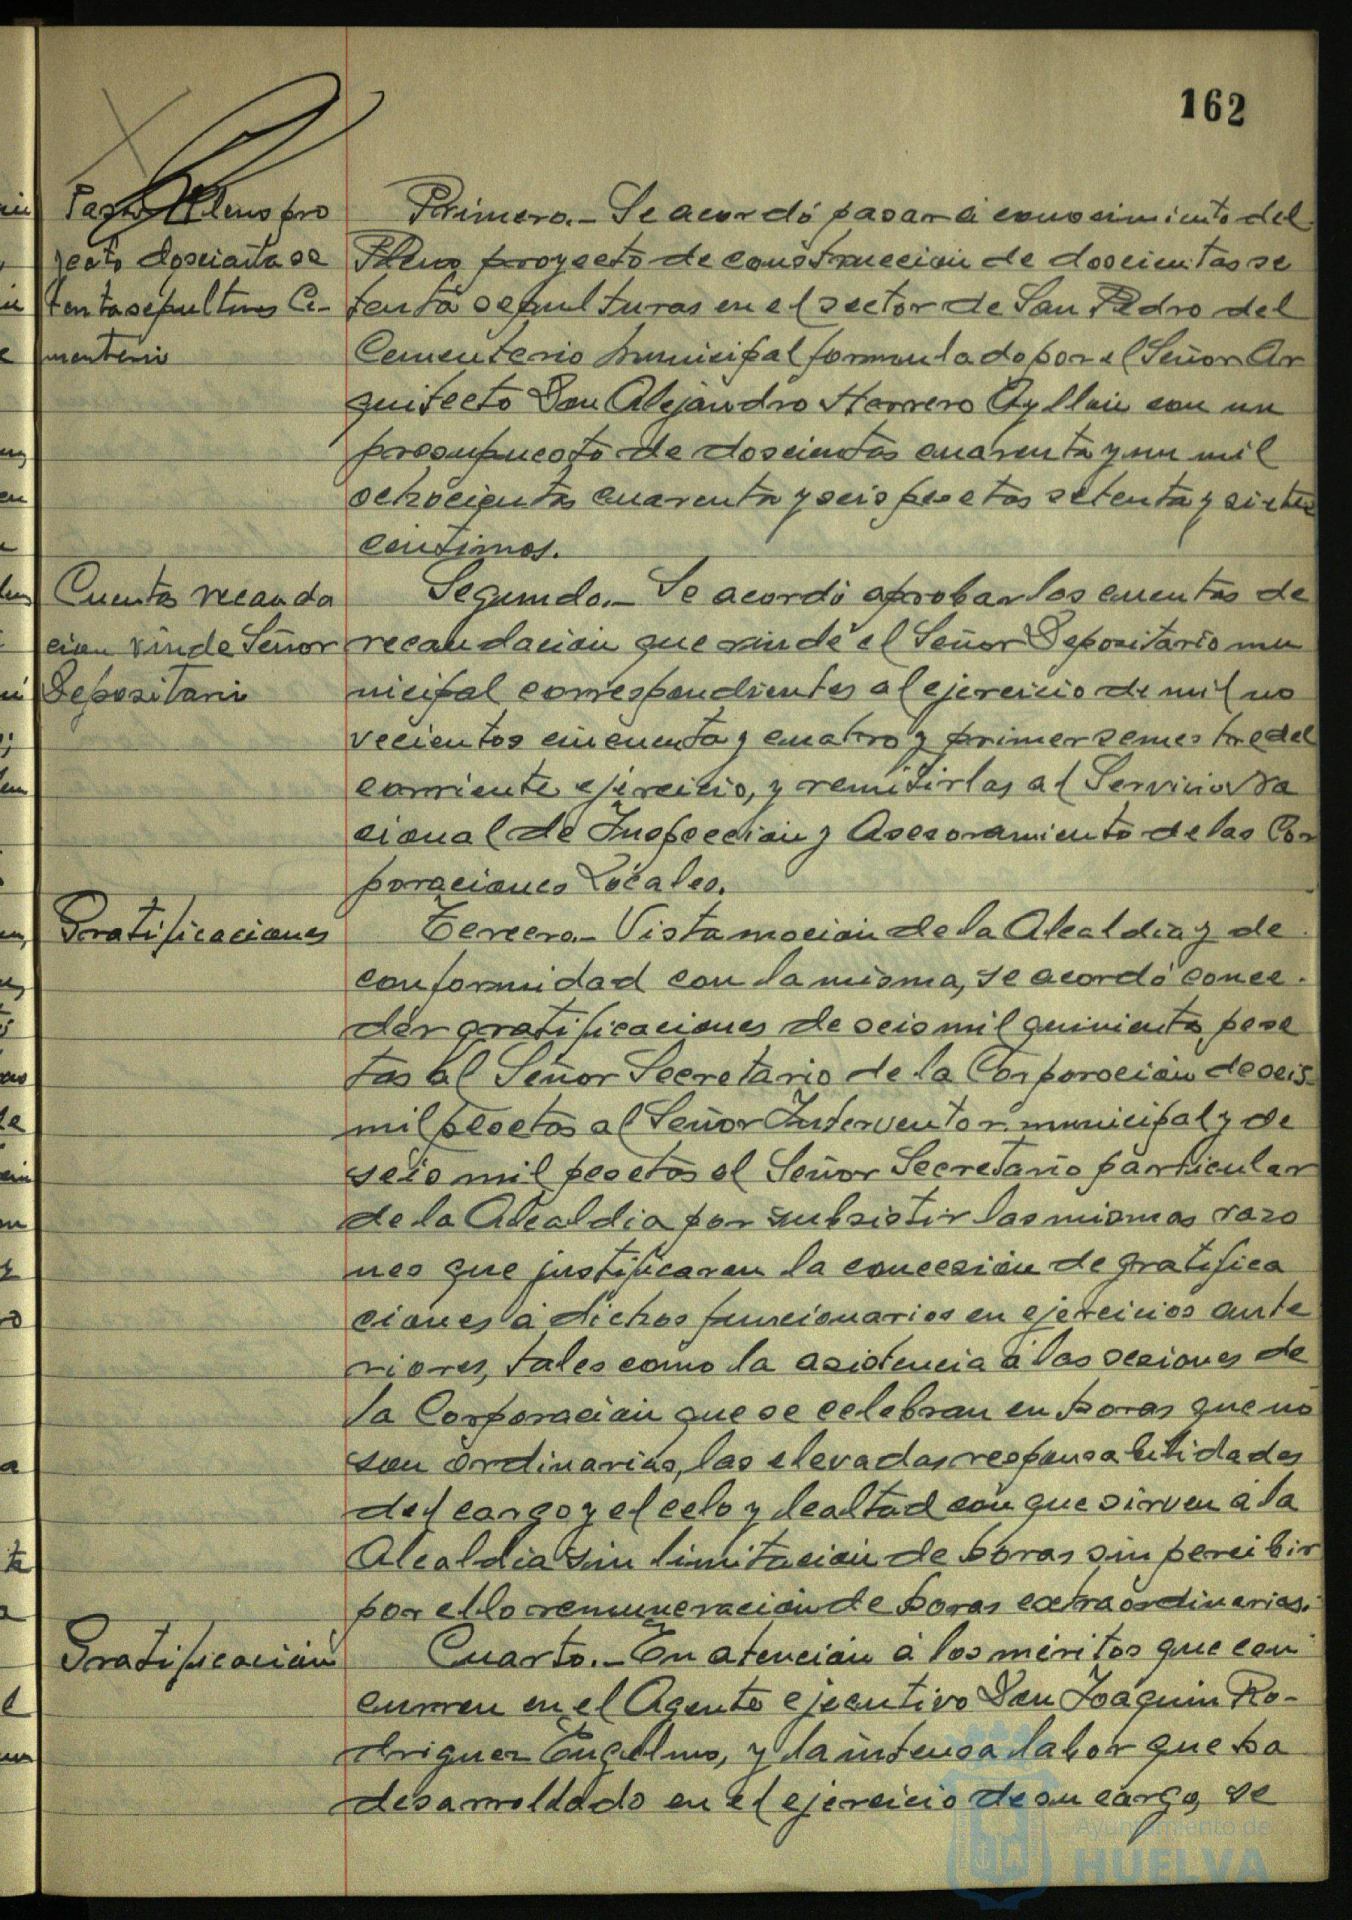 162
Pasar Pleno pro
yecto doscientas se
tenta sepulturas Ce-
menterio
Primero.- Se acordó pasar a conocimiento del
Pleno proyecto de construccion de doscientas se
tenta sepulturas en el sector de San Pedro del
Cementerio municipal formulado por el Señor Ar
quitecto Don Alejandro Herrero Ayllón con un
presupuesto de doscientas cuarenta y un mil
ochocientas cuarenta y seis pesetas setenta y siete
centimos.
Cuentas recauda
cion rinde Señor
Depositario
Segundo.- Se acordó aprobar las cuentas de
recaudación que rinde el Señor Depositario mu
nicipal correspondientes al ejercicio de mil no
vecientos cincuenta y cuatro y primer semestre del
corriente ejercicio, y remitirlas al Servicio Na
cional de Inspección y Asesoramiento de las Cor
poraciones Locales.
Gratificaciones
Tercero.- Vista moción de la Alcaldia y de
conformidad con la misma, se acordó conce
der gratificaciones de seis mil quinientas pese
tas al Señor Secretario de la Corporación de seis
mil pesetas al Señor Interventor municipal y de
seis mil pesetas al Señor Secretario particular
de la Alcaldia por subsistir las mismas razo
nes que justificaron la concesión de gratifica
ciones a dichos funcionarios en ejercicios ante
riores, tales como la asistencia a las sesiones de
la Corporación que se celebran en horas que no
son ordinarias, las elevadas responsabilidades
del cargo y el celo y lealtad con que sirven a la
Alcaldia sin limitación de horas sin percibir
por ello remuneración de horas extraordinarias.
Gratificación
Cuarto.- En atención a los méritos que con
curren en el Agente ejecutivo Don Joaquin Ro-
driguez Engelmo, y la intensa labor que ha
desarrollado en el ejercicio de su cargo, se
Ayuntamiento de
HUELVA